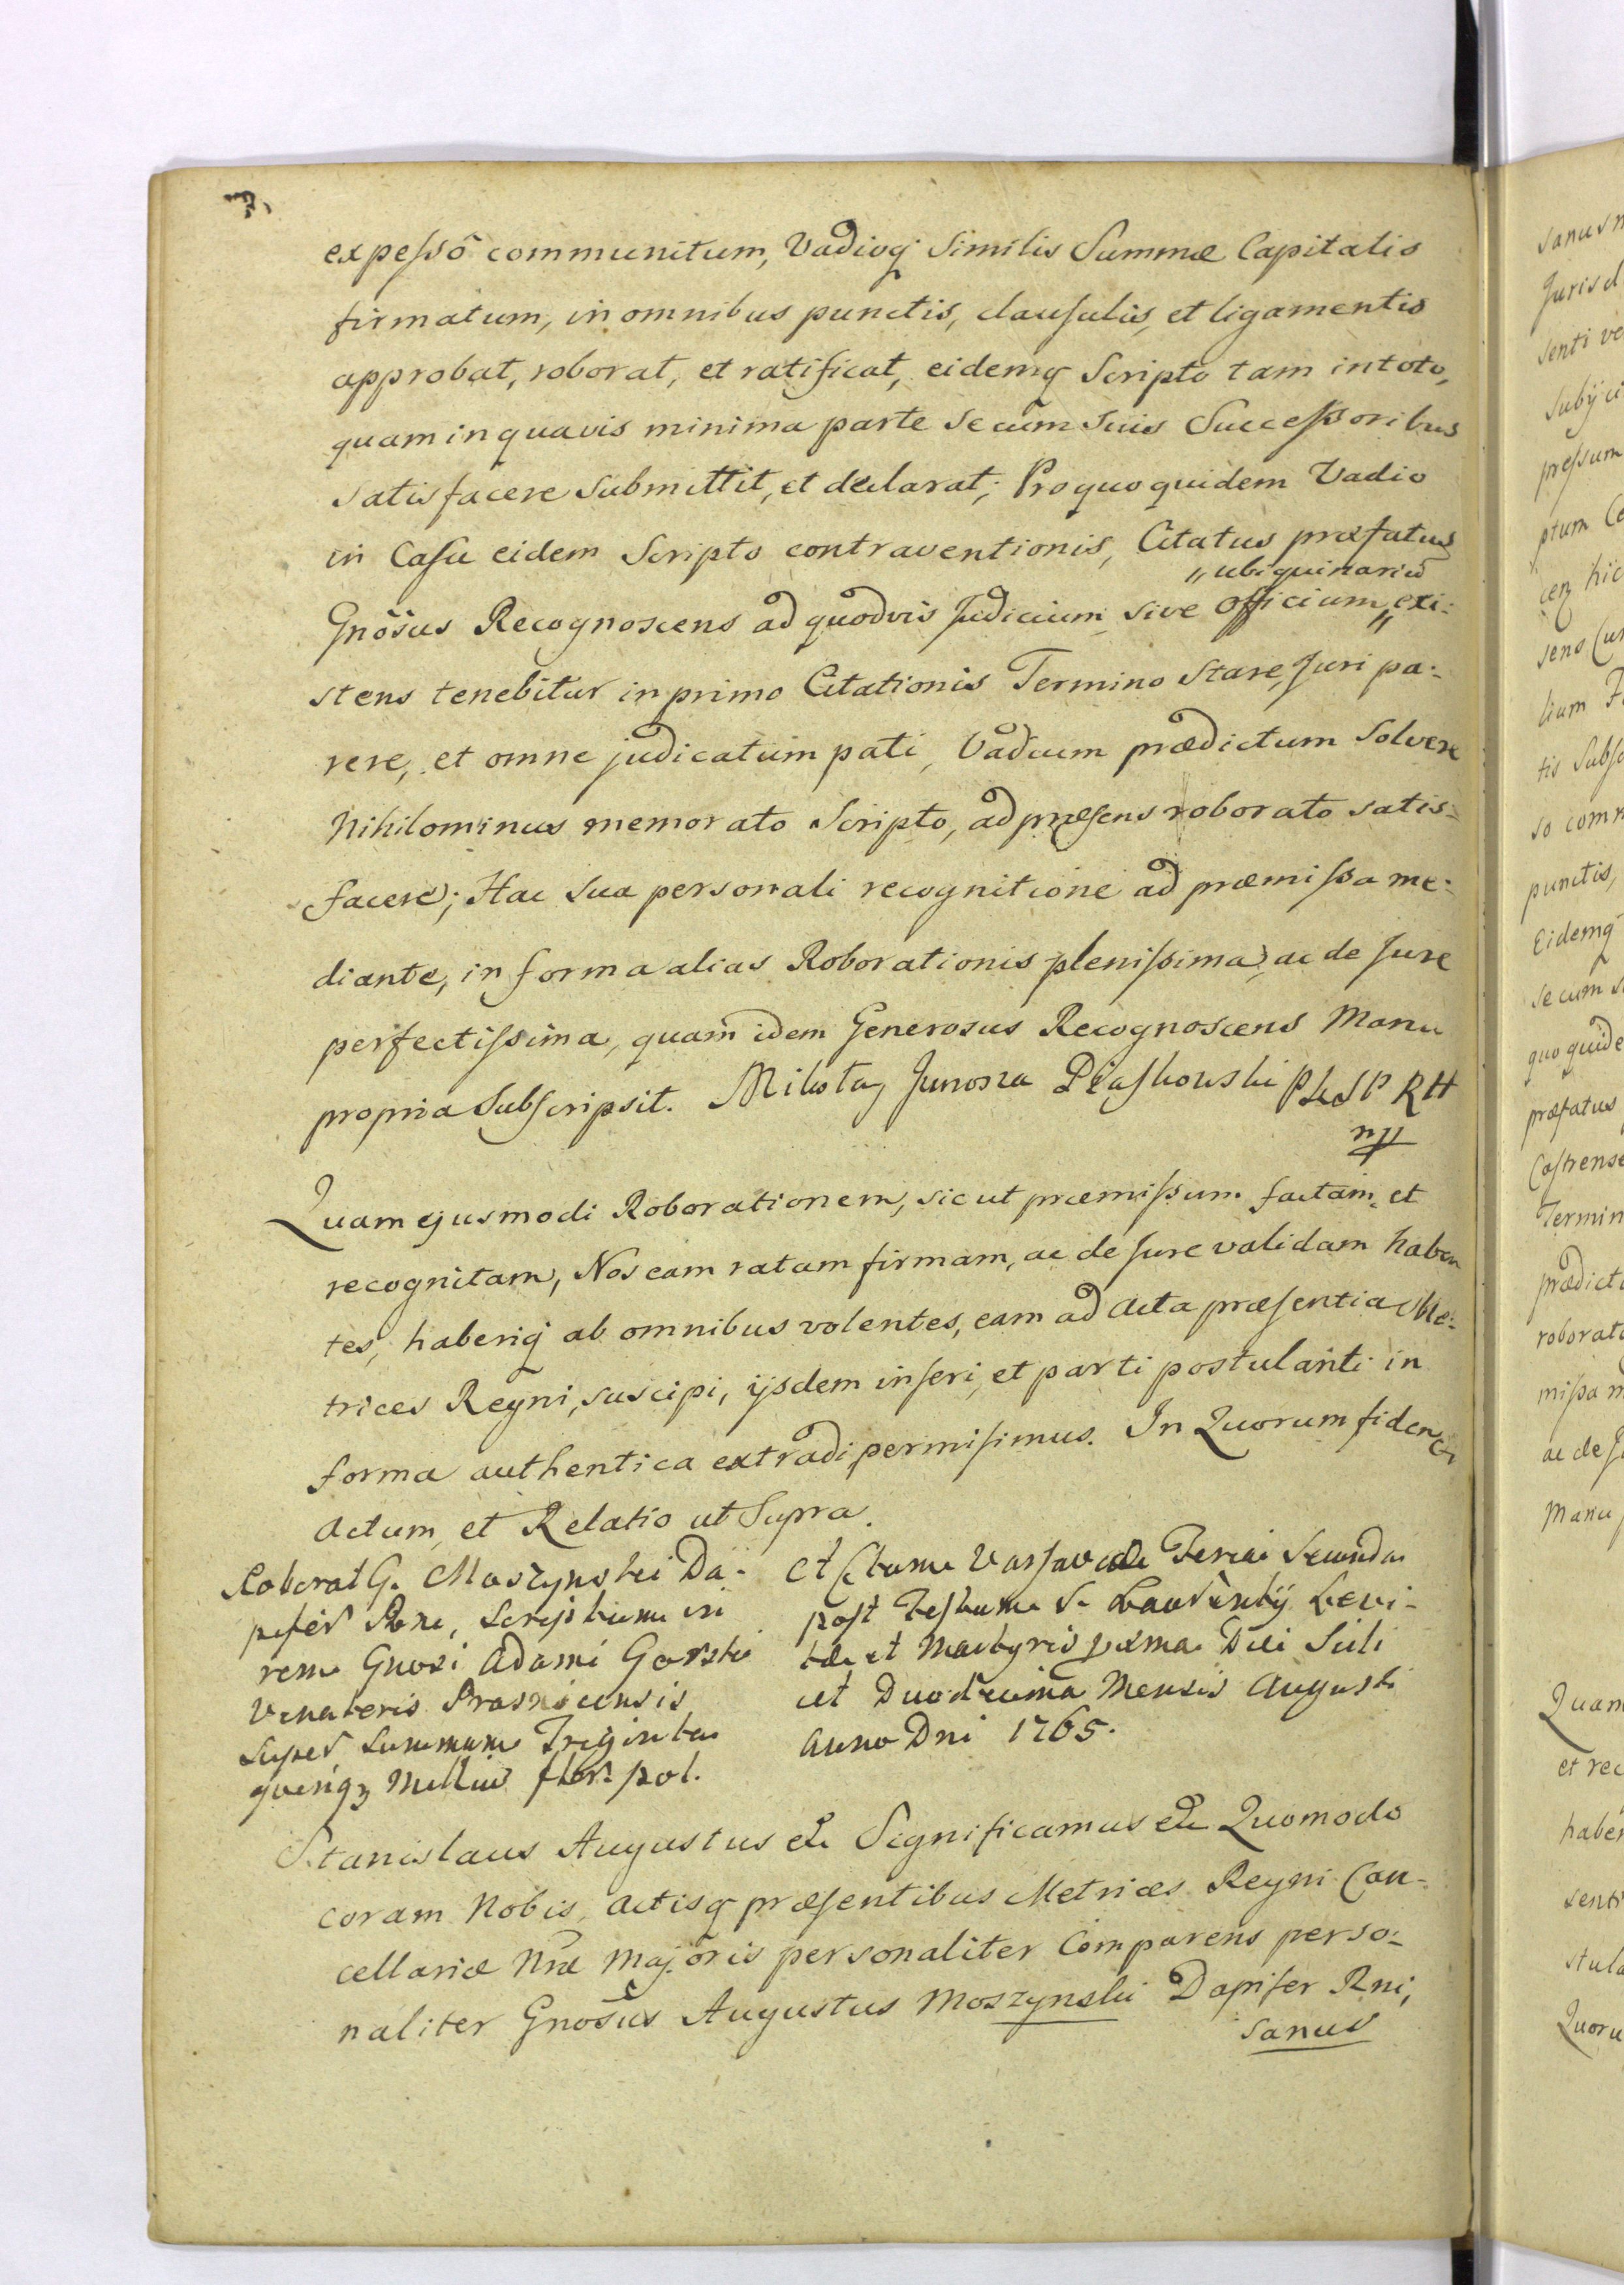 expesso communitum, Vadioq̃ Similis Summæ Capitalis
firmatum, in omnibus punctis, clausulis, et ligamentis
approbat, roborat, et ratificat, eidemq̃ Scripto tam in toto,
quam in quavis minima parte Se cum Suis Successoribus
Satisfacere Submittit, et declarat; Pro quo quidem Vadio
in Casu eidem Scripto contraventionis, Citatus præfatus
„ ubiquinariũ
Gnõsus Recognoscens ad quodvis Judicium sive Officium „ exi-
stens tenebitur in primo Citationis Termino Stare, Juri pa-
rere, et omne judicatum pati, Vadium prædictum Solvere
Nihilominus memorato Scripto, ad præsens roborato satis-
facere; Hac Sua personali recognitione ad præmissa me-
diante, in forma alias Roborationis plenissima, ac de Jure
perfectissima, quam idem Generosus Recognoscens Manu
propria Subscripsit. Mikołay Junosza Piaskowski PKSPRH
mp
Quam ejusmodi Roborationem, sic ut præmissum factam, et
recognitam, Nos eam ratam firmam, ac de Jure validam haben
tes, haberiq̃ ab omnibus volentes, eam ad Acta præsentia Me-
trices Regni, suscipi, ijsdem inseri, et parti postulanti in
forma authentica extradi permisimus. In Quorum fidem &
Actum, et Relatio ut Supra.
Roborat G. Moszynski Da-
pifer Rni, Scriptum in
rem Gnosi Adami Gorski
Venatoris Prasnicensis
super Summam Triginta
quinq3 Mille flor. pol.
Actum Varsaviæ Feria Secunda
post Festum S. Laurentij Levi-
tæ et Martyris proxima Die Scili
cet Duodecima Mensis Augusti
Anno Dni 1765.
Stanislaus Augustus etc Significamus etc Quomodo
coram Nobis, Actisq̃ præsentibus Metrices Regni Can-
cellariæ Nræ Majoris personaliter Comparens perso-
naliter Gnosus Augustus Moszynski Dapifer Rni,
sanus